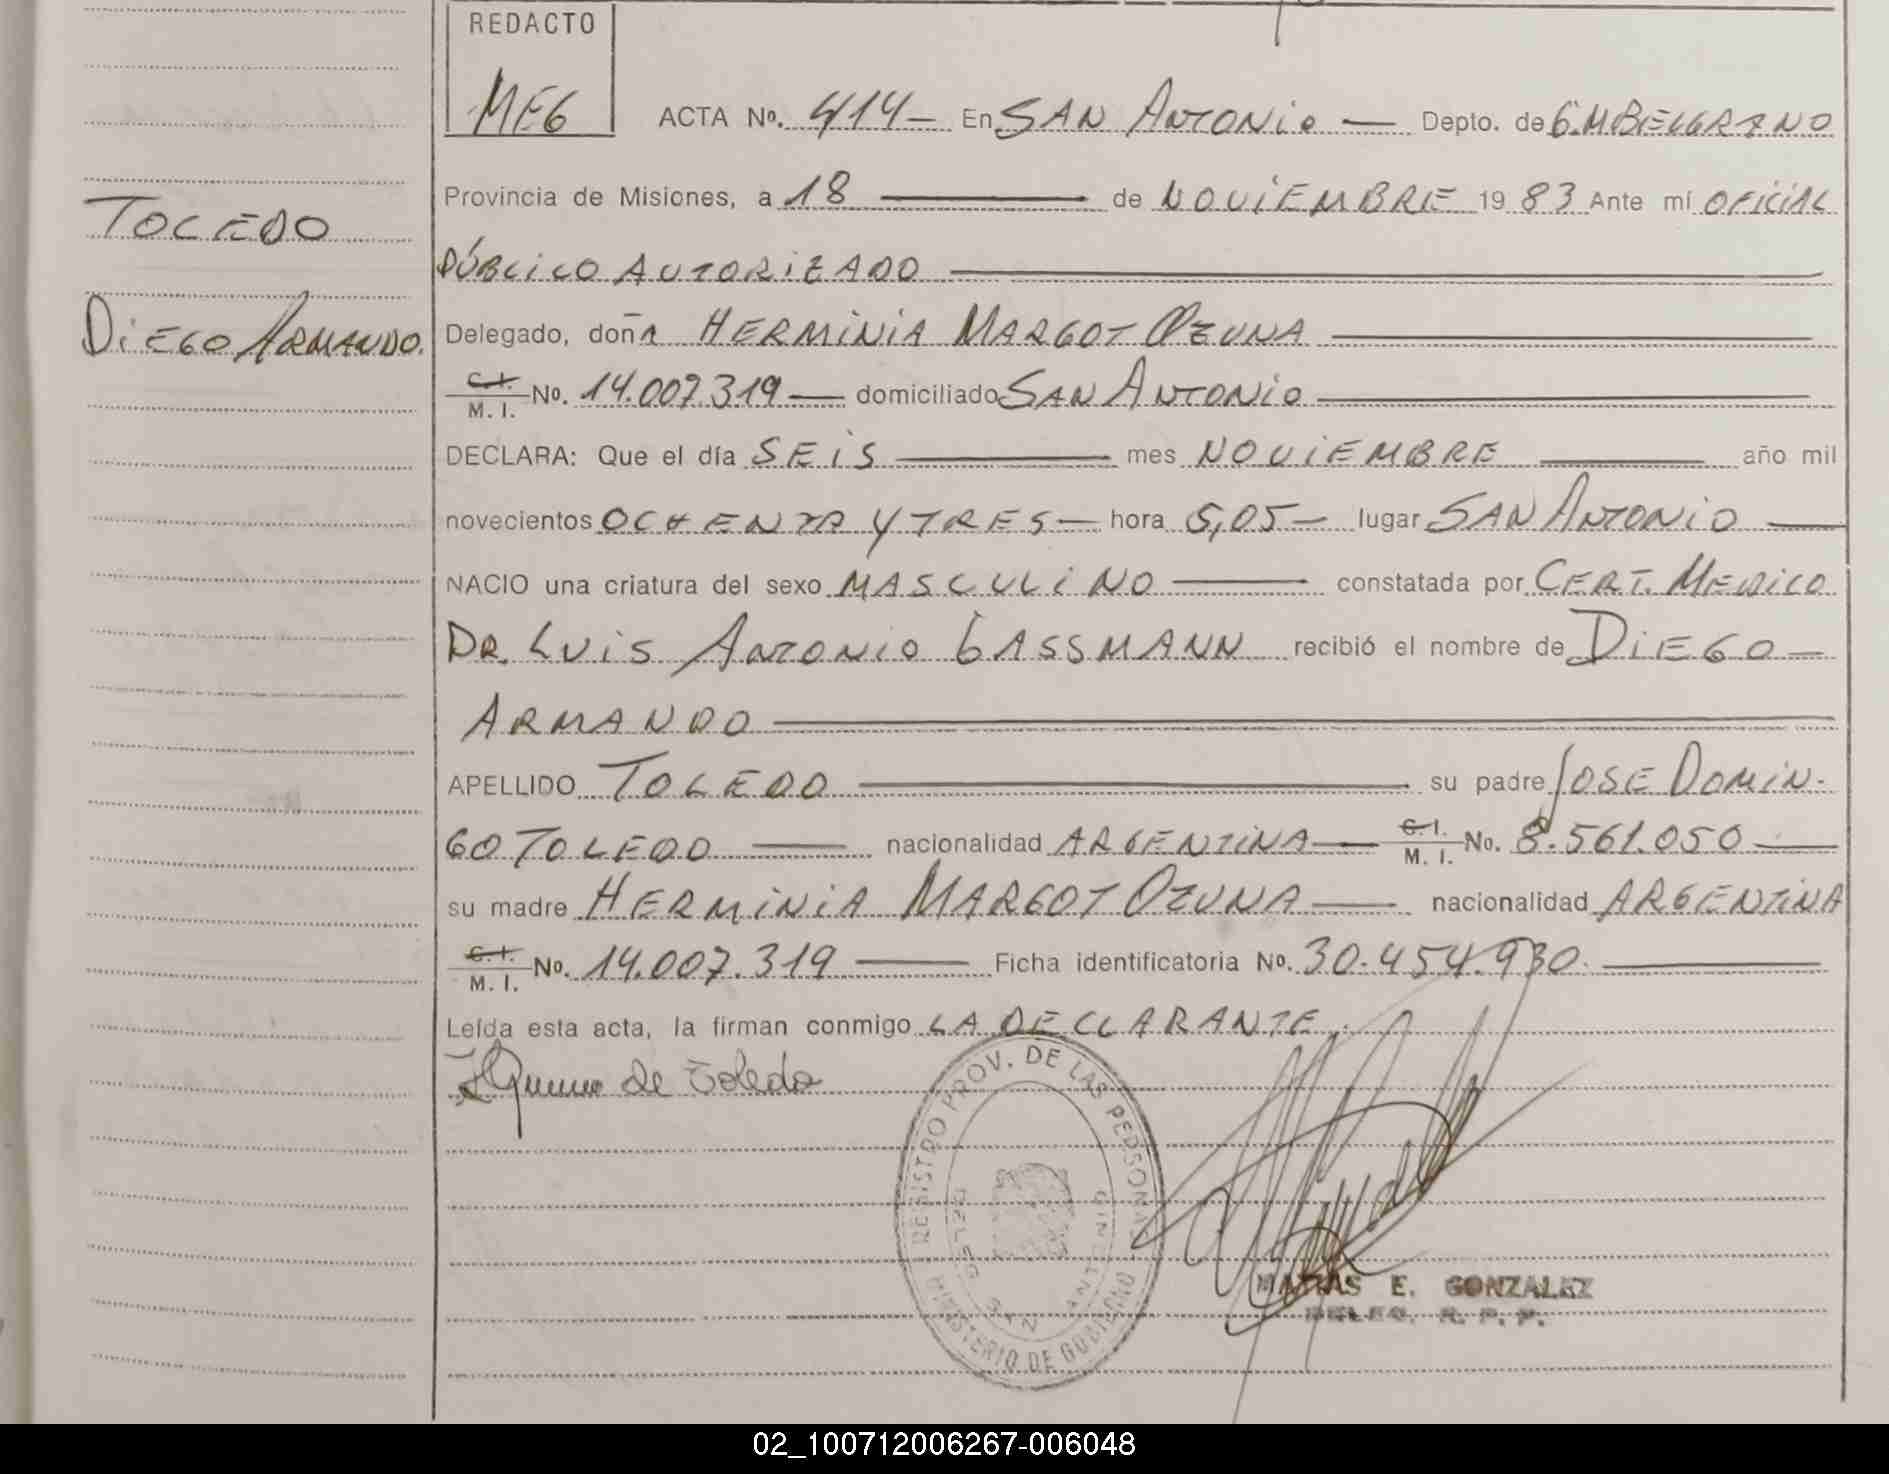 REDACTO
MEG
ACTA No. 414 — En SAN ANTONIO — Depto. de G.M BELGRANO
Provincia de Misiones, a 18 — de NOVIEMBRE 19 83 Ante mí OFICIAL
PÚBLICO AUTORIZADO —
TOLEDO
DIEGO ARMANDO.
Delegado, doña HERMINIA MARGOT OZUNA —
C.I. M.I. No. 14.007.319 — domiciliado SAN ANTONIO —
DECLARA: Que el día SEIS — mes NOVIEMBRE — año mil
novecientos OCHENTA Y TRES — hora 5,05 — lugar SAN ANTONIO —
NACIO una criatura del sexo MASCULINO — constatada por CERT. MEDICO
DR. LUIS ANTONIO GASSMANN recibió el nombre de DIEGO —
ARMANDO —
APELLIDO TOLEDO — su padre JOSE DOMIN-
GO TOLEDO — nacionalidad ARGENTINA — C.I. M.I. No. 8.561.050 —
su madre HERMINIA MARGOT OZUNA — nacionalidad ARGENTINA
C.I. M.I. No. 14.007.319 — Ficha identificatoria No. 30.454.930. —
Leída esta acta, la firman conmigo LA DECLARANTE.
de Toledo
REGISTRO PROV. DE LAS PERSONAS
MINISTERIO DE GOBIERNO
SAN ANTONIO
MATIAS E. GONZALEZ
DELEG. R. P. P.
02_100712006267-006048